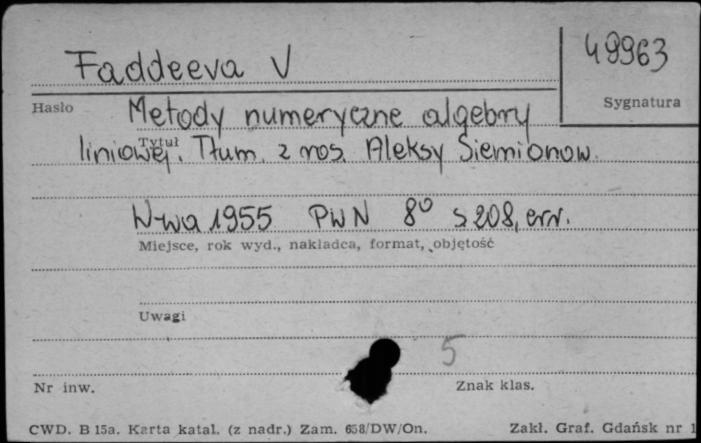 Faddeeva V
49963
Hasło
Sygnatura
Metody numeryczne algebry
Tytuł
liniowej. Tłum. z ros. Aleksy Siemionow.
W-wa 1955 PWN 8° s 208, err.
Miejsce, rok wyd., nakładca, format, objętość
Uwagi
5
Nr inw.
Znak klas.
CWD. B 15a. Karta katal. (z nadr.) Zam. 658/DW/On.
Zakł. Graf. Gdańsk nr 1